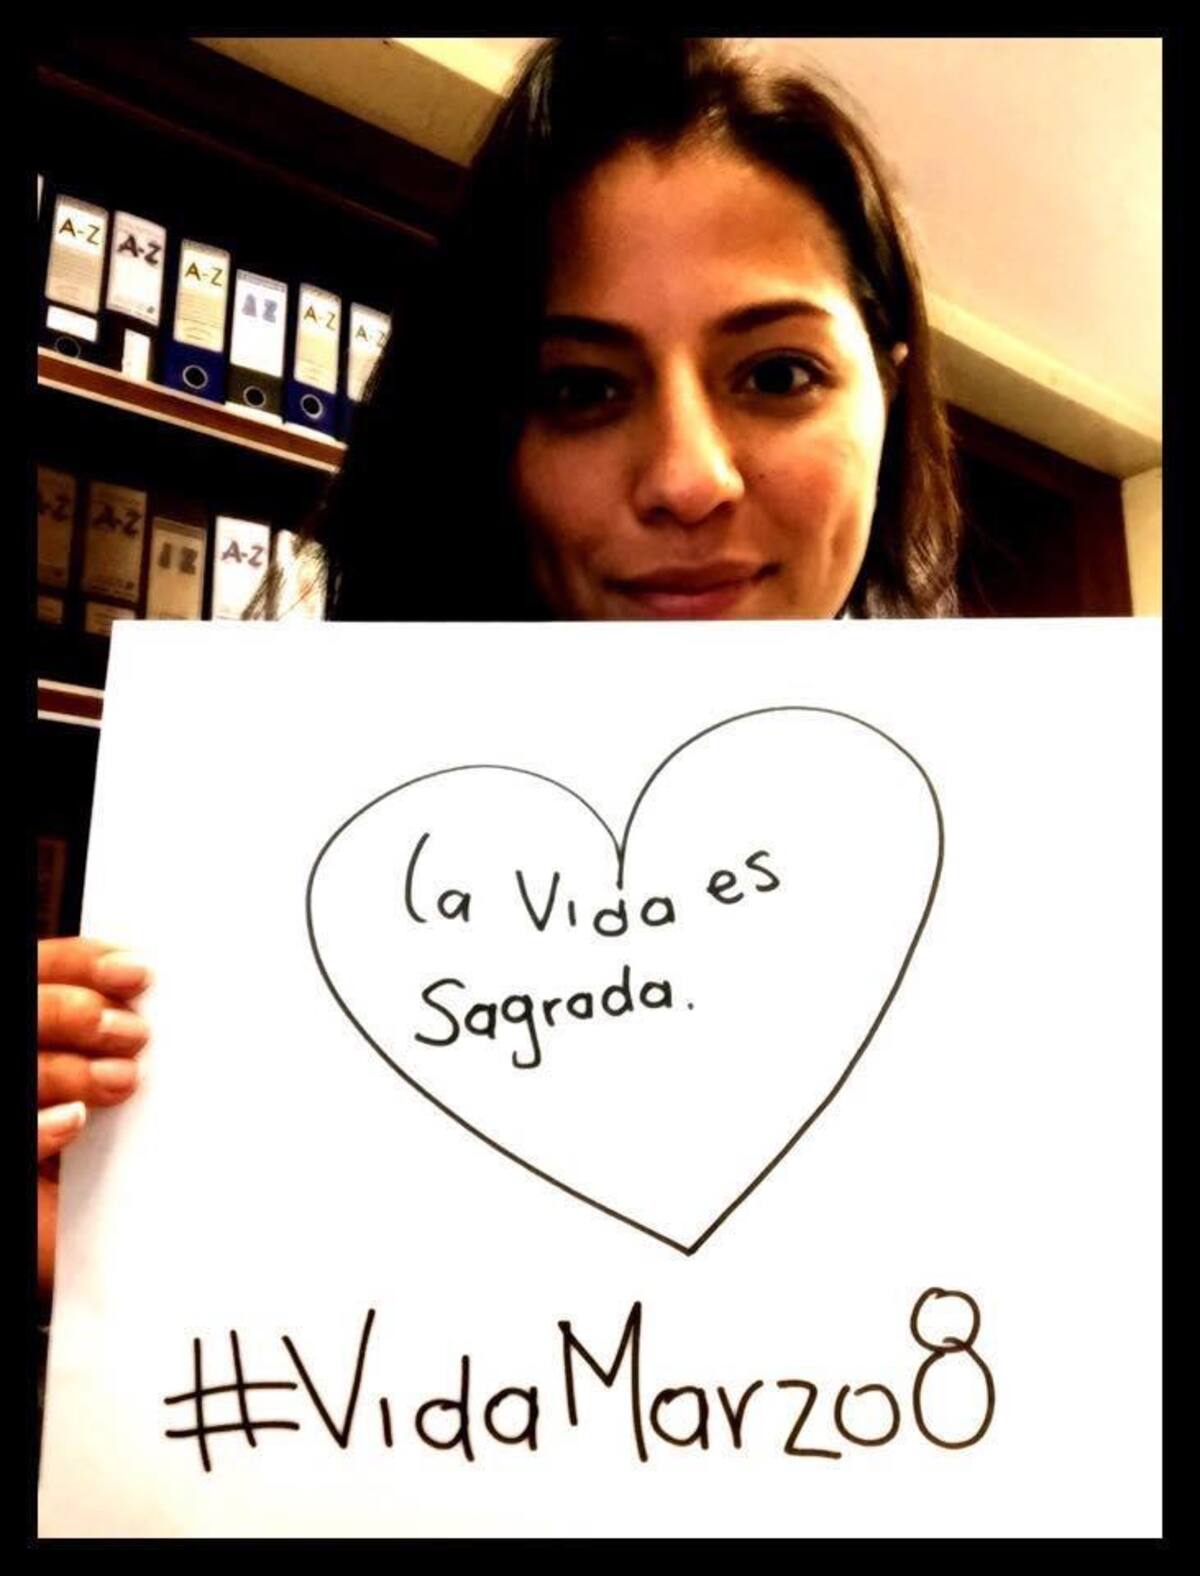 A-Z
A-Z
A-Z
A-Z
A-Z
A-Z
A-Z
A-Z
A-Z
La Vida es
Sagrada.
#VidaMarzo8